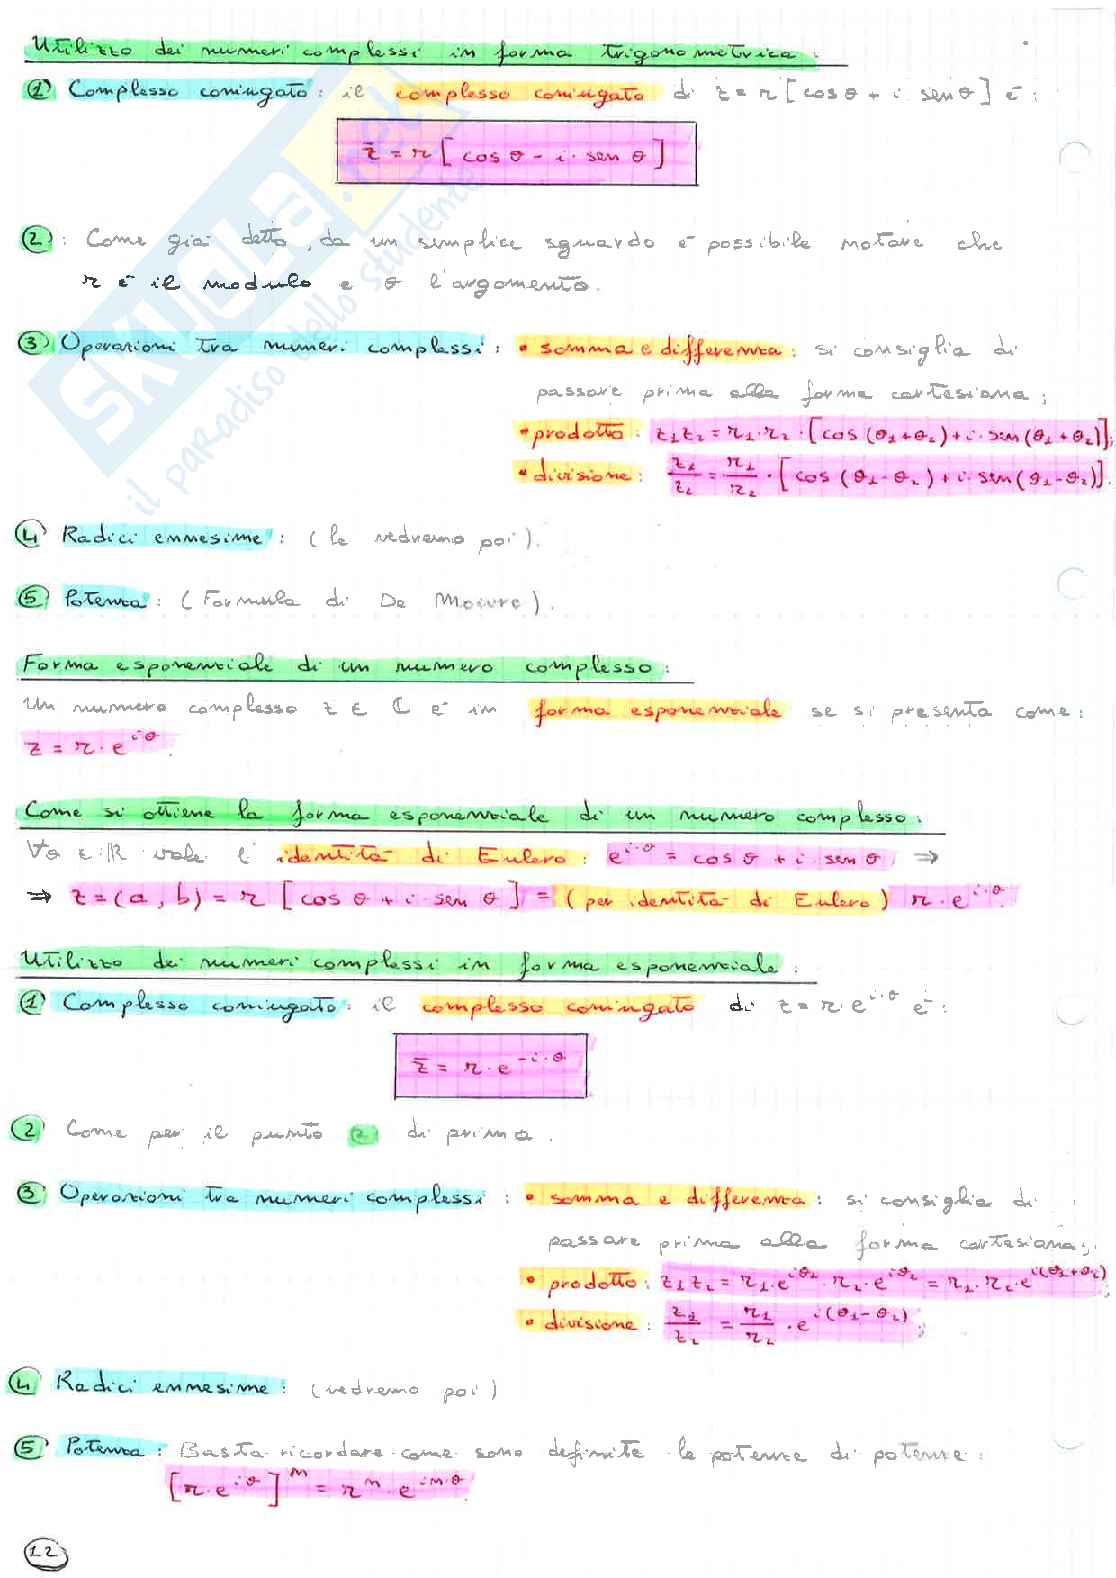 Utilizzo dei numeri complessi in forma trigonometrica:
① Complesso coniugato: il complesso coniugato di z=r[cosθ+i·senθ] è:
z̄=r[cosθ-i·senθ]
②: Come già detto, da un semplice sguardo è possibile notare che
r è il modulo e θ l'argomento.
③ Operazioni tra numeri complessi: • somma e differenza: si consiglia di
passare prima alla forma cartesiana;
• prodotto: z₁z₂=r₁·r₂·[cos(θ₁+θ₂)+i·sen(θ₁+θ₂)];
• divisione: z₁/z₂=r₁/r₂·[cos(θ₁-θ₂)+i·sen(θ₁-θ₂)].
④ Radici ennesime: (le vedremo poi).
⑤ Potenza: (Formula di De Moivre).
Forma esponenziale di un numero complesso:
Un numero complesso z∈ℂ è in forma esponenziale se si presenta come:
z=r·e^{iθ}.
Come si ottiene la forma esponenziale di un numero complesso:
∀θ∈ℝ vale l'identità di Eulero: e^{i·θ}=cosθ+i·senθ ⇒
⇒ z=(a,b)=r[cosθ+i·senθ]=(per identità di Eulero) r·e^{i·θ}
Utilizzo dei numeri complessi in forma esponenziale:
① Complesso coniugato: il complesso coniugato di z=r·e^{i·θ} è:
z̄=r·e^{-i·θ}
② Come per il punto ② di prima.
③ Operazioni tra numeri complessi: • somma e differenza: si consiglia di
passare prima alla forma cartesiana;
• prodotto: z₁z₂=r₁·e^{iθ₁}·r₂·e^{iθ₂}=r₁·r₂·e^{i(θ₁+θ₂)};
• divisione: z₁/z₂=r₁/r₂·e^{i(θ₁-θ₂)};
④ Radici ennesime: (vedremo poi)
⑤ Potenza: Basta ricordare come sono definite le potenze di potenze:
[r·e^{iθ}]^n=r^n·e^{i·n·θ}
12
SKUOLA.net
il paradiso dello studente